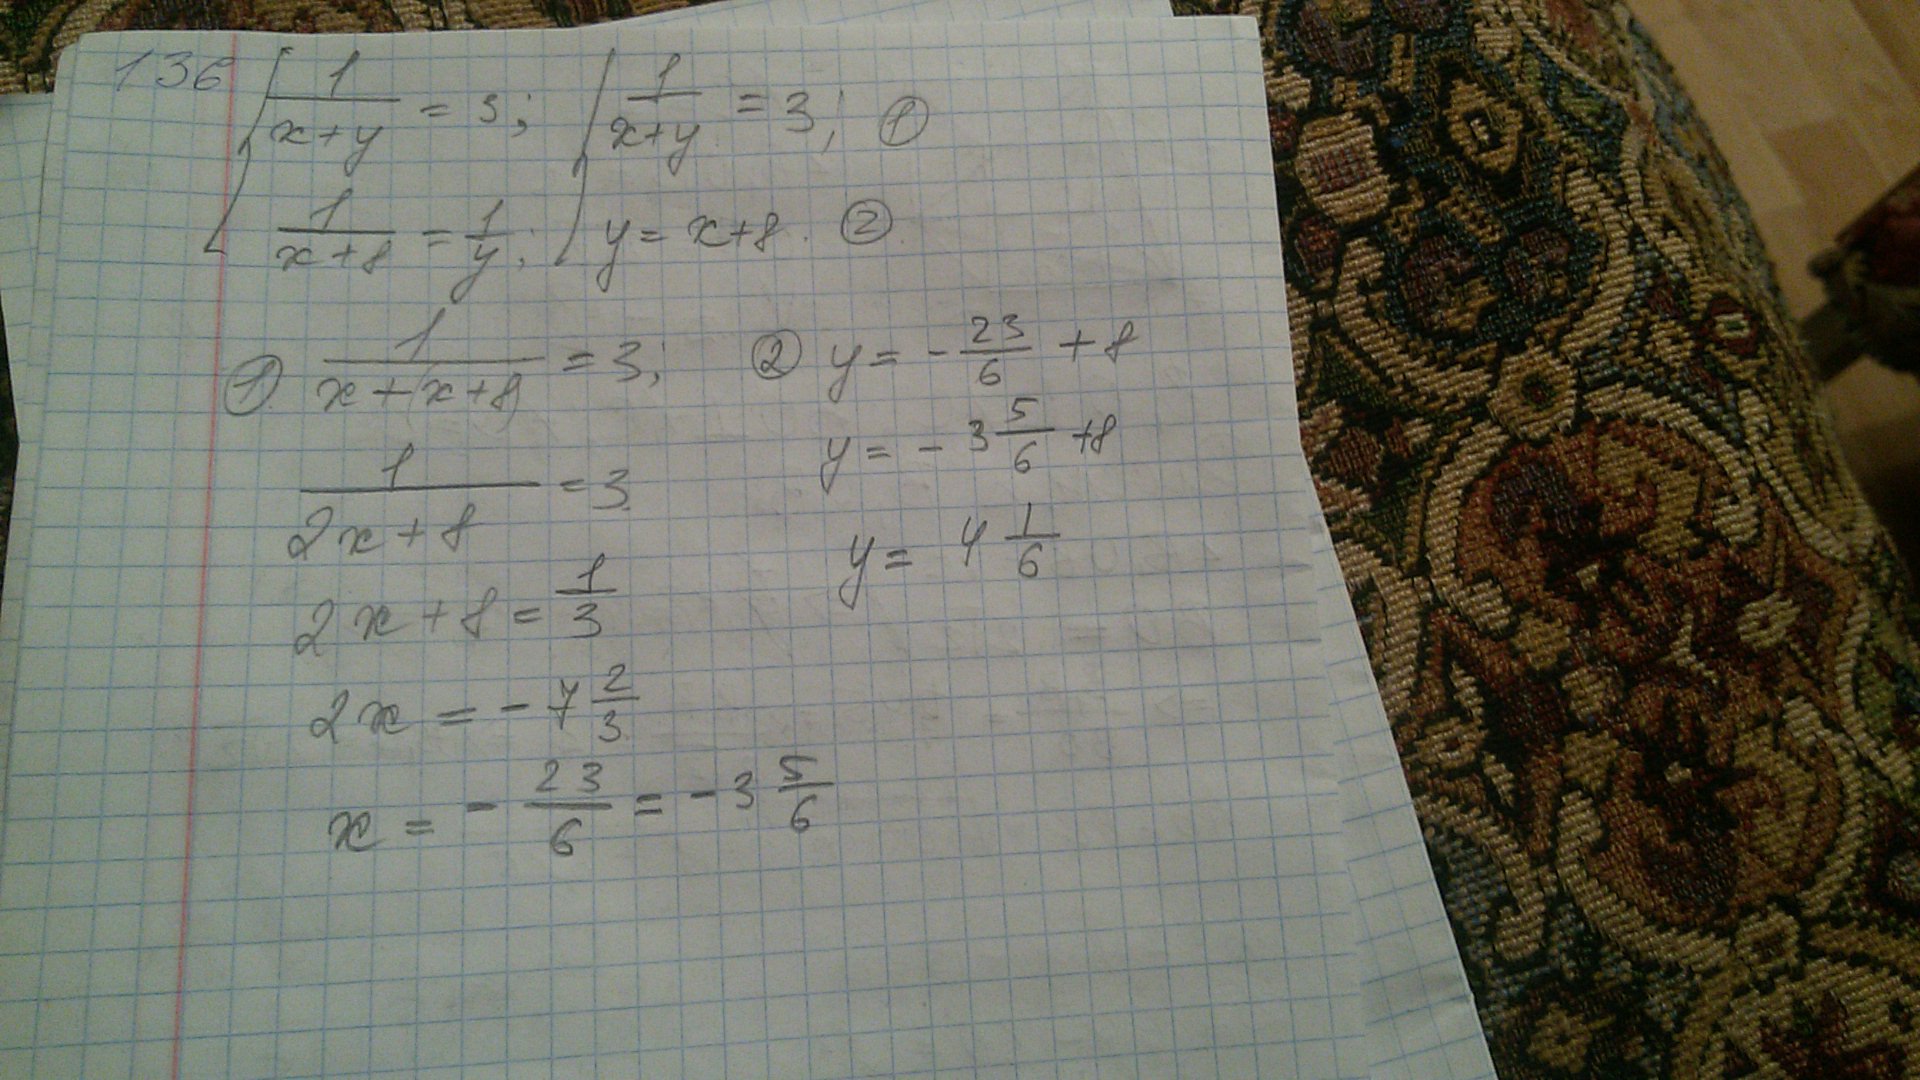 136 { 1/(x+y) = 3; { 1/(x+y) = 3; ①
1/(x+8) = 1/y; y = x+8. ②
① 1/(x+(x+8)) = 3;
1/(2x+8) = 3
2x+8 = 1/3
2x = - 7 2/3
x = - 23/6 = - 3 5/6
② y = - 23/6 + 8
y = - 3 5/6 +8
y = 4 1/6